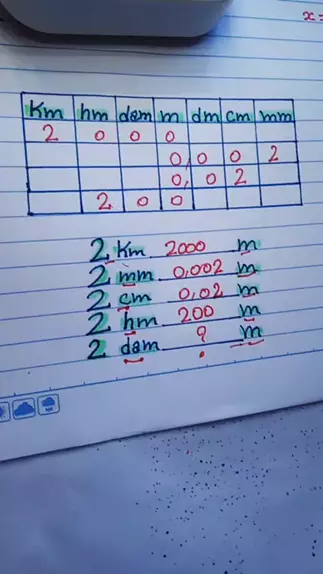 x=
Km hm dam m dm cm mm
2 0 0 0
0, 0 0 2
0, 0 2
2 0 0
2 Km 2000 m
2 mm 0,002 m
2 cm 0,02 m
2 hm 200 m
2 dam ? m